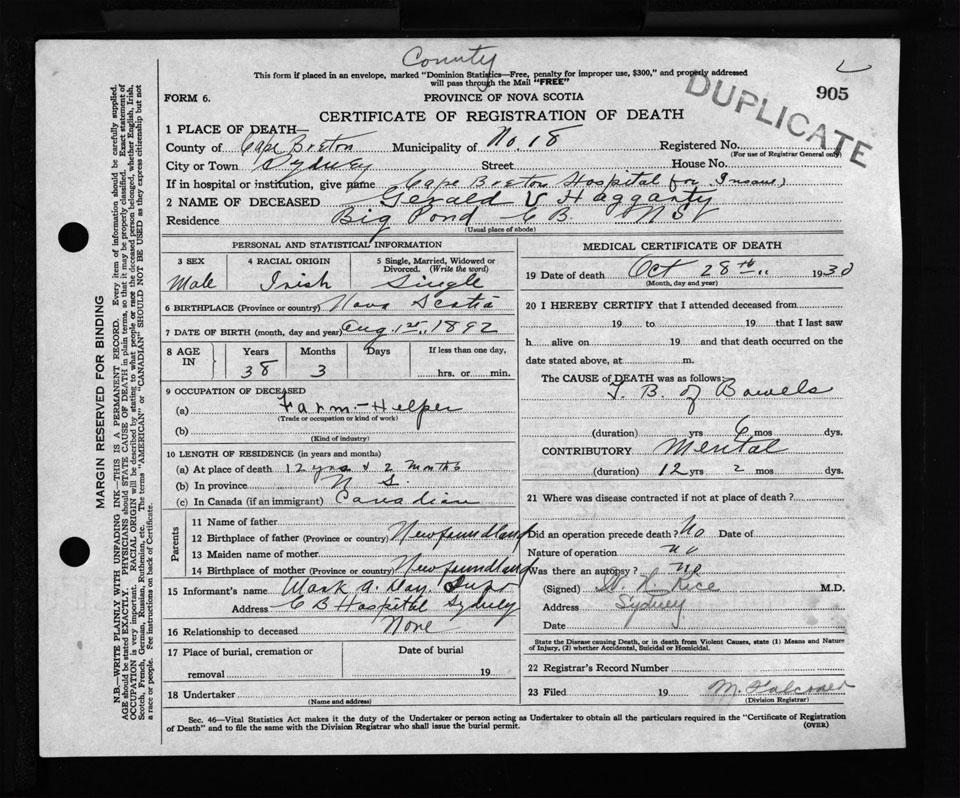 County
This form if placed in an envelope, marked "Dominion Statistics—Free, penalty for improper use, $300," and properly addressed
will pass through the Mail "FREE"
FORM 6.
PROVINCE OF NOVA SCOTIA
905
DUPLICATE
CERTIFICATE OF REGISTRATION OF DEATH
1 PLACE OF DEATH
County of Cape Breton Municipality of No. 18 Registered No.
(For use of Registrar General only)
City or Town Sydney Street House No.
If in hospital or institution, give name Cape Breton Hospital for Insane)
2 NAME OF DECEASED Gerald V Haggarty
Residence Big Pond C B N S
(Usual place of abode)
PERSONAL AND STATISTICAL INFORMATION
3 SEX 4 RACIAL ORIGIN 5 Single, Married, Widowed or Divorced. (Write the word)
Male Irish Single
6 BIRTHPLACE (Province or country) Nova Scotia
7 DATE OF BIRTH (month, day and year) Aug. 1st, 1892
8 AGE IN Years Months Days If less than one day,
38 3 hrs. or min.
9 OCCUPATION OF DECEASED
(a) Farm-Helper
(Trade or occupation or kind of work)
(b)
(Kind of industry)
10 LENGTH OF RESIDENCE (in years and months)
(a) At place of death 12 yrs & 2 months
(b) In province N S.
(c) In Canada (if an immigrant) Canadian
Parents
11 Name of father
12 Birthplace of father (Province or country) Newfoundland
13 Maiden name of mother
14 Birthplace of mother (Province or country) Newfoundland
15 Informant's name Mark A. Day. Supt
Address C B Hospital Sydney
16 Relationship to deceased None
17 Place of burial, cremation or removal Date of burial 19
18 Undertaker
(Name and address)
MEDICAL CERTIFICATE OF DEATH
19 Date of death Oct 28th 1930
(Month, day and year)
20 I HEREBY CERTIFY that I attended deceased from
19 to 19 that I last saw
h alive on 19 and that death occurred on the
date stated above, at m.
The CAUSE of DEATH was as follows:
T. B. of Bowels
(duration) yrs 6 mos dys.
CONTRIBUTORY Mental
(duration) 12 yrs 2 mos dys.
21 Where was disease contracted if not at place of death?
Did an operation precede death? No Date of
Nature of operation no
Was there an autopsy? no
(Signed) Rice M.D.
Address Sydney
Date
State the Disease causing Death, or in death from Violent Causes, state (1) Means and Nature
of Injury, (2) whether Accidental, Suicidal or Homicidal.
22 Registrar's Record Number
23 Filed 19 M. Falconer
(Division Registrar)
Sec. 46—Vital Statistics Act makes it the duty of the Undertaker or person acting as Undertaker to obtain all the particulars required in the "Certificate of Registration
of Death" and to file the same with the Division Registrar who shall issue the burial permit.
(OVER)
MARGIN RESERVED FOR BINDING
N.B.—WRITE PLAINLY WITH UNFADING INK—THIS IS A PERMANENT RECORD. Every item of information should be carefully supplied.
AGE should be stated EXACTLY. PHYSICIANS should STATE CAUSE OF DEATH in plain terms, so that it may be properly classified. Exact statement of
OCCUPATION is very important. RACIAL ORIGIN will be described by stating to what people or race the deceased person belonged, whether English, Irish,
Scotch, French, German, Russian, Ruthenian, etc. The terms "AMERICAN" or "CANADIAN" SHOULD NOT BE USED as they express citizenship but not
a race or people. See instructions on back of Certificate.